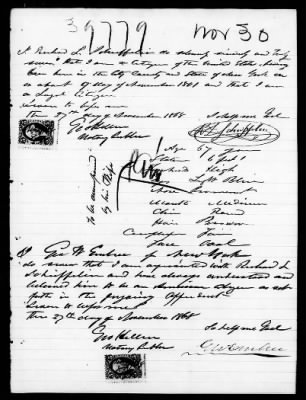 39779 Nov 30
I Richard L. Schieffelin do solemnly sincerely and truly
swear that I am a citizen of the United States, having
been born in the City County and State of New York on
day of November 1801 that I am
a loyal citizen
Sworn to before me
this 27th day of November 1868
Geo Hillen
Notary Public
R L Schieffelin
To be accompanied
by his Wife
Age 67 years
Stature 6 feet
Forehead High
Eyes Blue
Nose Prominent
Mouth Medium
Chin Round
Hair Brown
Complexion Fair
Face Oval
I Geo. W. of New York
do swear that I am acquainted with Richard L
Schieffelin and have always understood and
believed him to be an American Citizen as set
forth in the foregoing Affidavit
Sworn to before me
this 27th day of November 1868
Geo Hillen
Notary Public